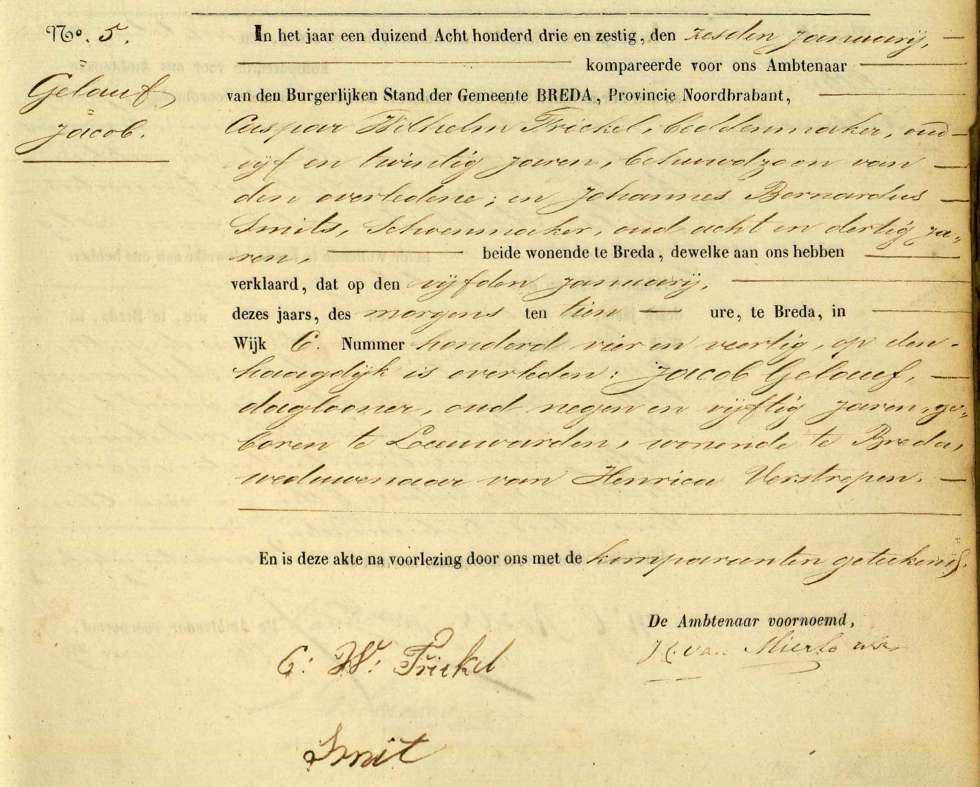 No. 5.
Gelauf
Jacob.
In het jaar een duizend Acht honderd drie en zestig, den zesden Januarij,
kompareerde voor ons Ambtenaar
van den Burgerlijken Stand der Gemeente BREDA, Provincie Noordbrabant,
Caspar Wilhelm Frickel, beddenmaker, oud
vijf en twintig jaren, behuwdzoon van
den overledene; en Johannes Bernardus
Smits, Schoenmaker, oud acht en dertig ja-
ren, beide wonende te Breda, dewelke aan ons hebben
verklaard, dat op den vijfden Januarij,
dezes jaars, des morgens ten tien ure, te Breda, in
Wijk C. Nummer honderd vier en veertig, op den
haagdijk is overleden: Jacob Gelauf,
daglooner, oud negen en vijftig jaren, ge-
boren te Leeuwarden, wonende te Breda,
weduwenaar van Henrica Verstrepen.
En is deze akte na voorlezing door ons met de komparanten geteekend.
De Ambtenaar voornoemd,
van Mierlo
C: W: Frickel
Smit